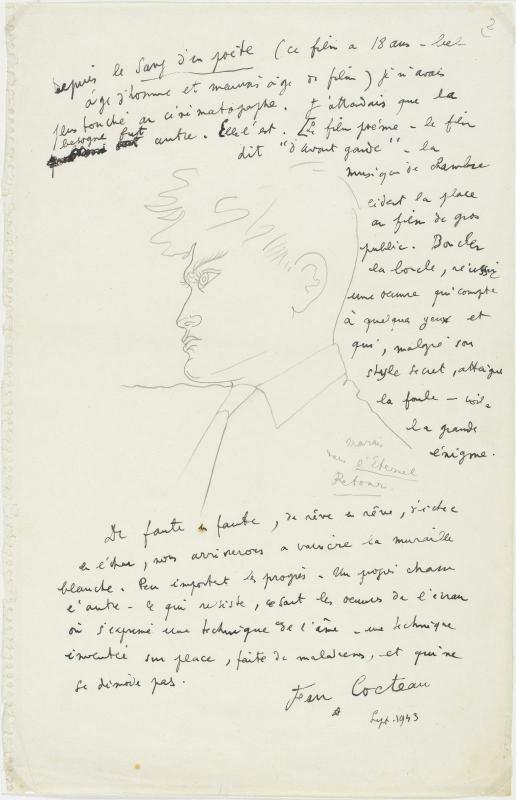 2
Depuis le Sang d'un poète (ce film a 18 ans - bel
âge d'homme et mauvais âge de film) je n'avais
plus touché au cinématographe. J'attendais que la
besogne fut autre. Elle l'est. Le film poème - le film
dit "d'avant garde" - la
musique de chambre
cèdent la place
au film de gros
public. Boucler
la boucle, réussir
une oeuvre qui compte
à quelques yeux et
qui, malgré son
style secret, attaque
la foule - voilà
la grande
énigme.
Marais
dans l'Eternel
Retour.
De faute en faute, de rêve en rêve, d'échec
en échec, nous arriverons a vaincre la muraille
blanche. Peu importent les progrès. Un progrès chasse
l'autre - ce qui résiste, ce sont les oeuvres de l'écran
où s'exprime une technique de l'âme - une technique
inventée sur place, faite de maladresses, et qui ne
se démode pas.
Jean Cocteau
Sept. 1943